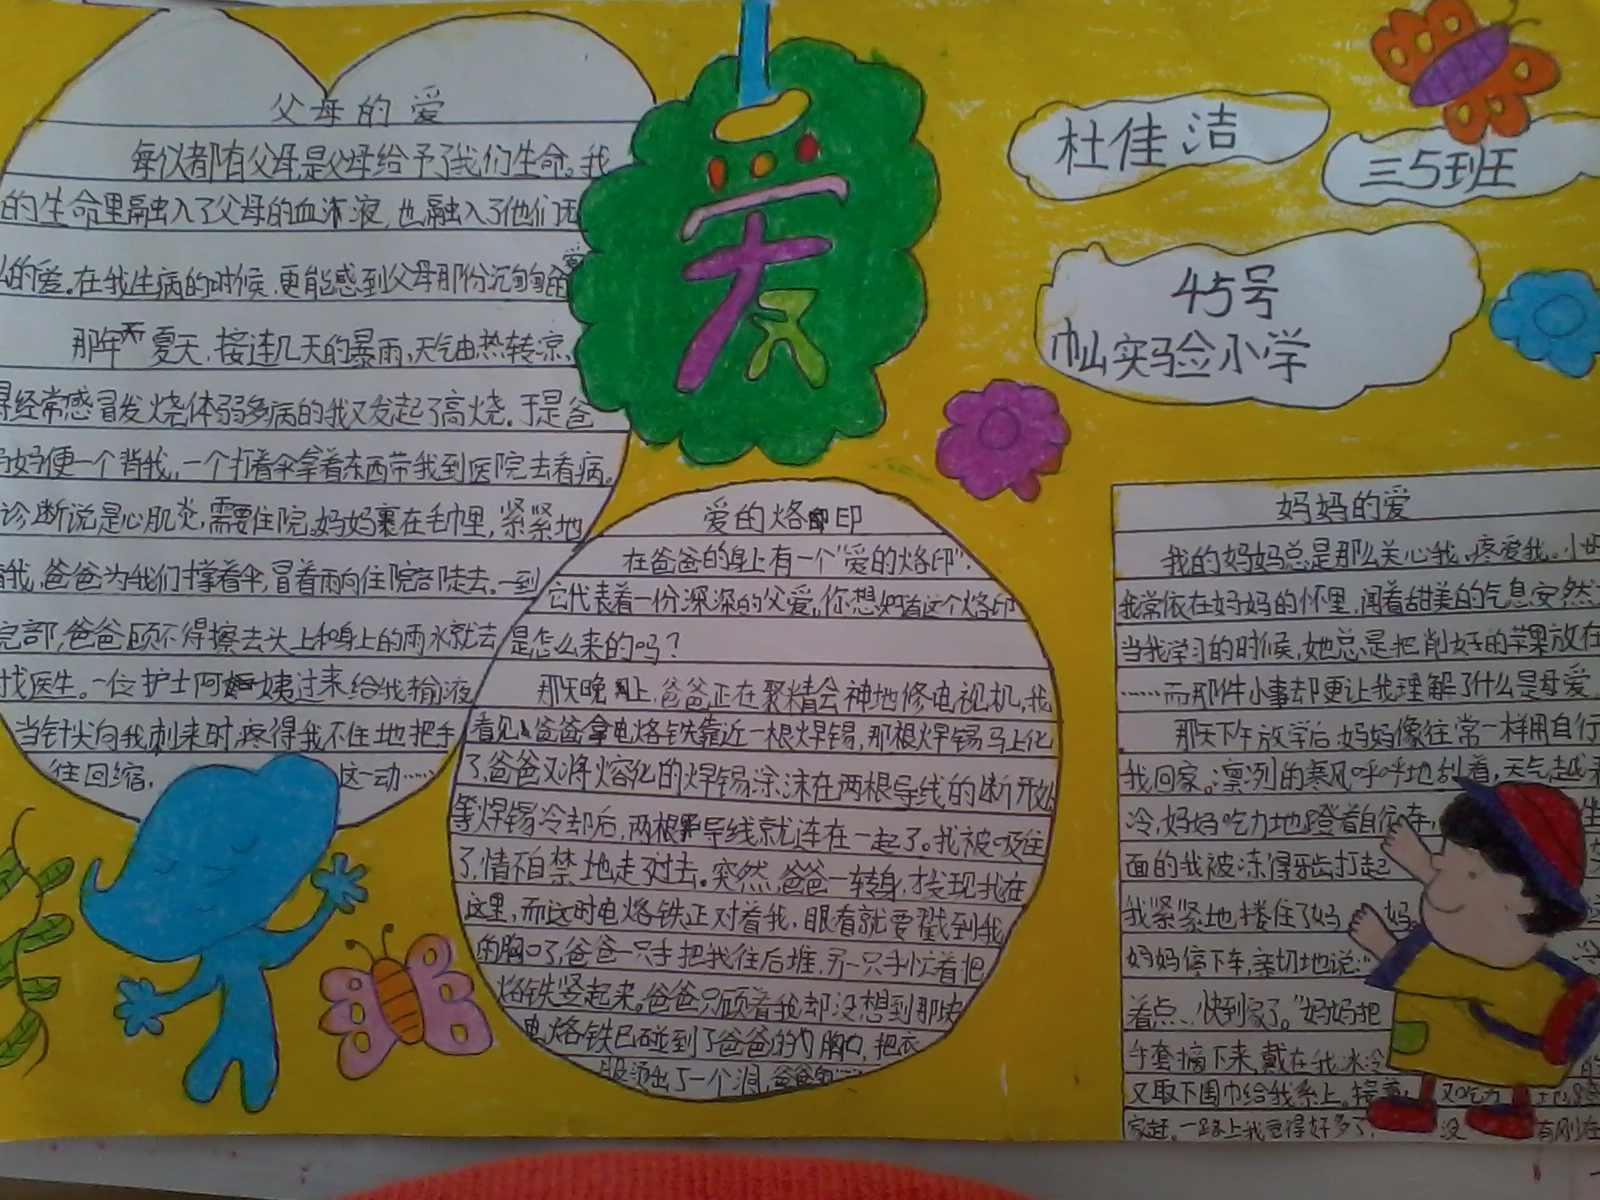 父母的爱
每似都有父母,是父母给予了我们生命。我
的生命里融入了父母的血液,也融入了他们无
的爱。在我生病的时候,更能感到父母那份沉甸甸的爱
那年夏天,接连几天的暴雨,天气由热转凉,
得经常感冒发烧体弱多病的我又发起了高烧。于是爸
妈便一个背我,一个打着伞拿着东西带我到医院去看病。
诊断说是心肌炎,需要住院。妈妈裹在毛巾里,紧紧地
着我,爸爸为我们撑着伞,冒着雨向住院部走去。一到
院部,爸爸顾不得擦去头上和身上的雨水就去
找医生。一位护士阿姨过来给我输液
当针尖向我刺来时,疼得我不住地把手
往回缩, 这一动……
爱
杜佳洁
三5班
45号
巾山实验小学
爱的烙印
在爸爸的身上有一个“爱的烙印”,
它代表着一份深深的父爱。你想知道这个烙印
是怎么来的吗?
那天晚上,爸爸正在聚精会神地修电视机,我
看见爸爸拿电烙铁靠近一根焊锡,那根焊锡马上化
了,爸爸又将熔化的焊锡涂沫在两根导线的断开处
等焊锡冷却后,两根导线就连在一起了。我被吸住
了,情不自禁地走了过去。突然,爸爸一转身,才发现我在
这里,而这时电烙铁正对着我,眼看就要戳到我
的胸口了,爸爸一只手把我往后推,另一只手忙着把
烙铁竖起来。爸爸只顾着我却没想到那块
电烙铁已碰到了爸爸的胸口,把衣
服烫出了一个洞,爸爸的
妈妈的爱
我的妈妈总是那么关心我、疼爱我。小时
我常依在妈妈的怀里,闻着甜美的气息安然
当我学习的时候,她总是把削好的苹果放在
……而那件小事却更让我理解了什么是母爱
那天下午放学后,妈妈像往常一样用自行
我回家。凛冽的寒风呼呼地刮着,天气越来
冷,妈妈吃力地蹬着自行车,
面的我被冻得牙齿打起
我紧紧地搂住了妈妈
妈妈停下车,亲切地说:“
着点,快到家了。”妈妈把
手套摘下来,戴在我冰冷
又取下围巾给我系上。接着, 又吃力
家赶。一路上我觉得好多了, 没 有刚在